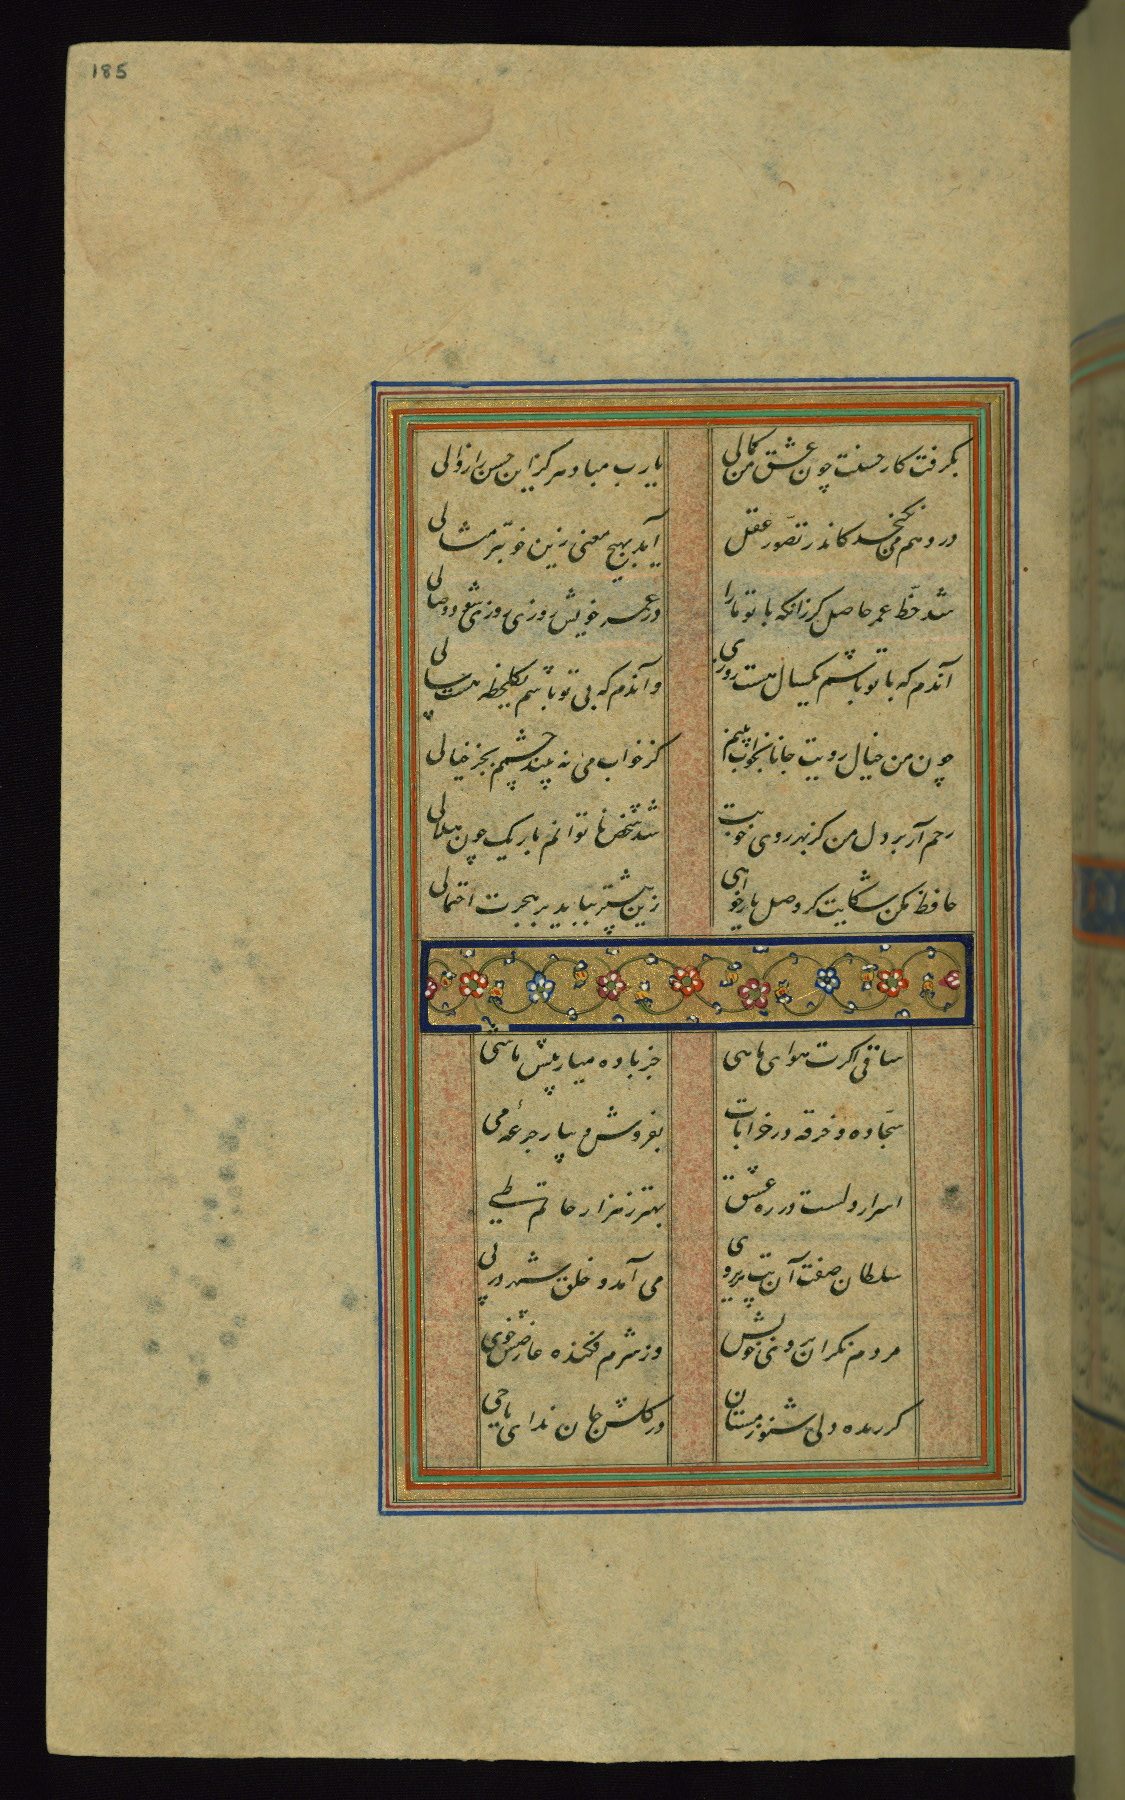 185
بکرفت کار حسنت چون عشق من کمالی
یارب مباد هرکز این حسن را زوالی
در وهم من نکنجد کاندر تصور عقل
آید بهیچ معنی زین خوبتر مثالی
شد حظ عمر حاصل کر زانکه با تو ما را
در عمر خویش روزی روزی شود وصالی
آندم که با تو باشم یکسال هست روزی
وآندم که بی تو باشم یکلحظه هست سالی
چون من خیال رویت جانا بخواب بینم
کز خواب می نه بیند چشمم بجز خیالی
رحم آر بر دل من کز بهر روی خوبت
شد شخص ناتوانم باریک چون هلالی
حافظ مکن شکایت کر وصل یار خواهی
زین بیشتر بباید بر هجرت احتمالی
ساقی اکرت هوای ماهی
جز باده میار پیش ما شی
سجاده و خرقه در خرابات
بفروش و بیار جرعهٔ می
اسرار دلست در ره عشق
بهتر ز هزار حاتم طی
سلطان صفت آن بت پریروی
می آمد و خلق شهر در پی
مردم نکران بروی خویش
وز شرم فکنده عارضش خوی
کر زنده دلی شنو ز مستان
در کلشن جان ندای یا حی